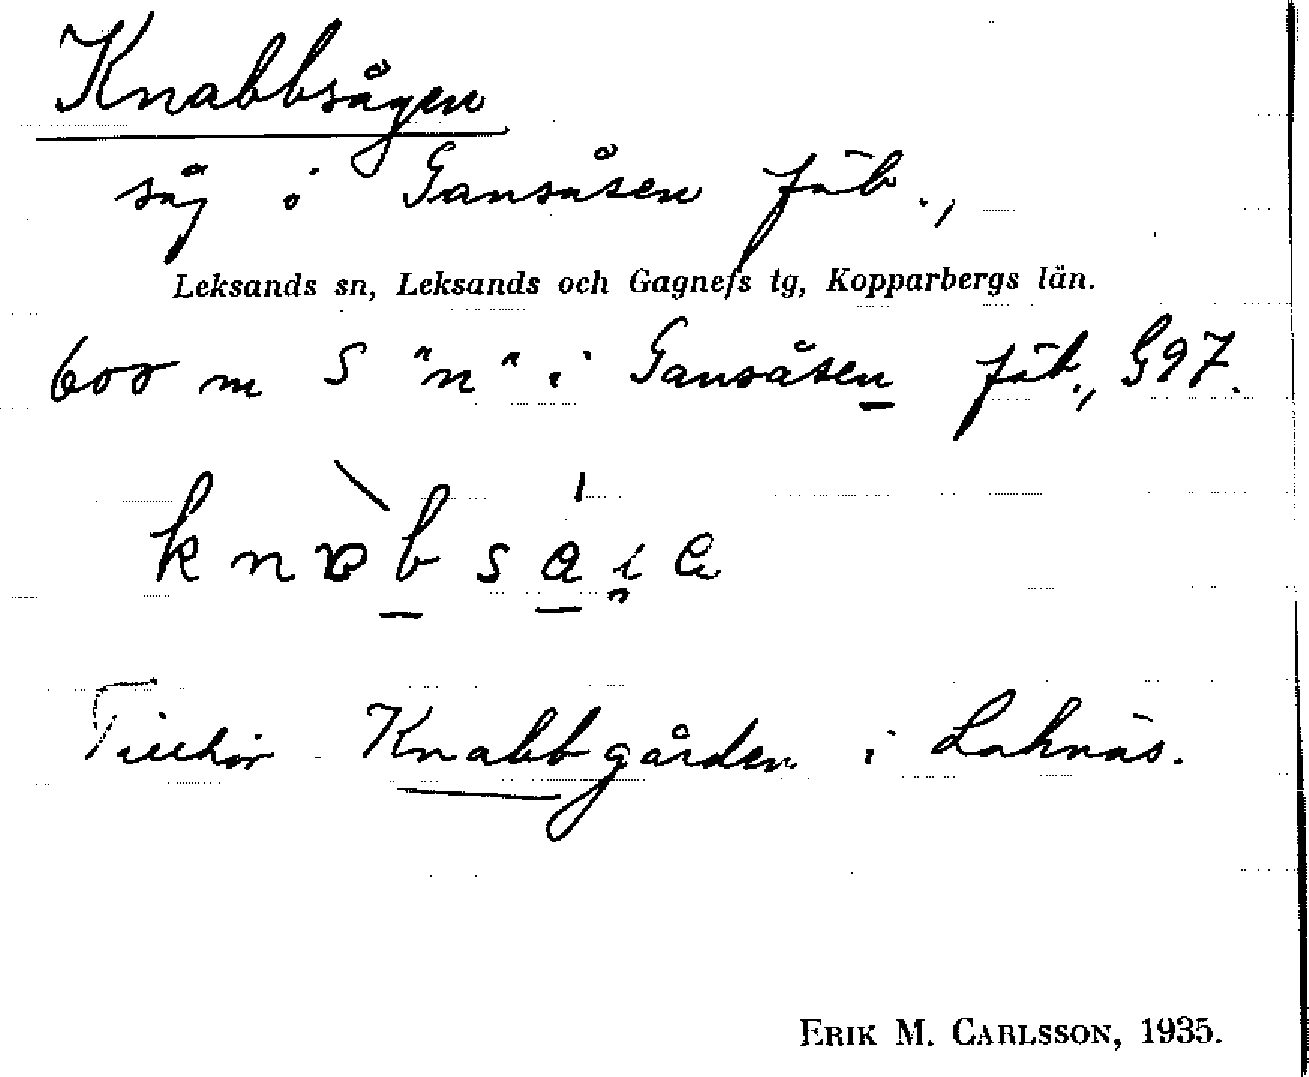 Knabbsågen
såg i Gansåsen fäb.,
Leksands sn, Leksands och Gagnefs tg, Kopparbergs län.
600 m S "n" i Gansåsen fäb., G97.
Tillhör Knabbgården i Laknäs.
ERIK M. CARLSSON, 1935.